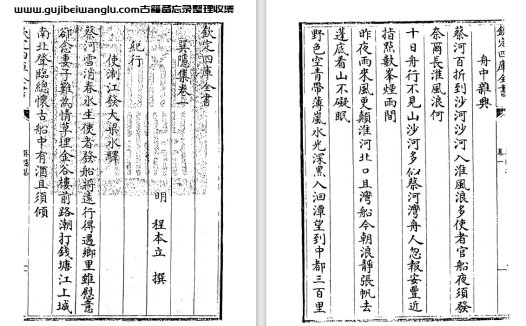 www.gujibeiwanglu.com古籍备忘录整理收集
欽定四庫全書
卷一
舟中雜興
蔡河百折到沙河沙河入淮風浪多使者官船夜須發
奈爾長淮風浪何
十日舟行不見山沙河多似蔡河灣舟人忽報安豐近
指點數峯煙雨間
昨夜雨來風更顛淮河北口且灣船今朝浪靜張帆去
蓬底看山不礙眠
野色空青帶薄嵐水光深黑入洄潭望到中都三百里
欽定四庫全書
巽隱集卷一
明 程本立 撰
紀行
使浙江發大梁水驛
蔡河雪消春水生使者發船將遠行得過鄉里雖慰意
卻念妻子難為情草埋金谷樓前路潮打錢塘江上城
南北登臨總懷古船中有酒且須傾